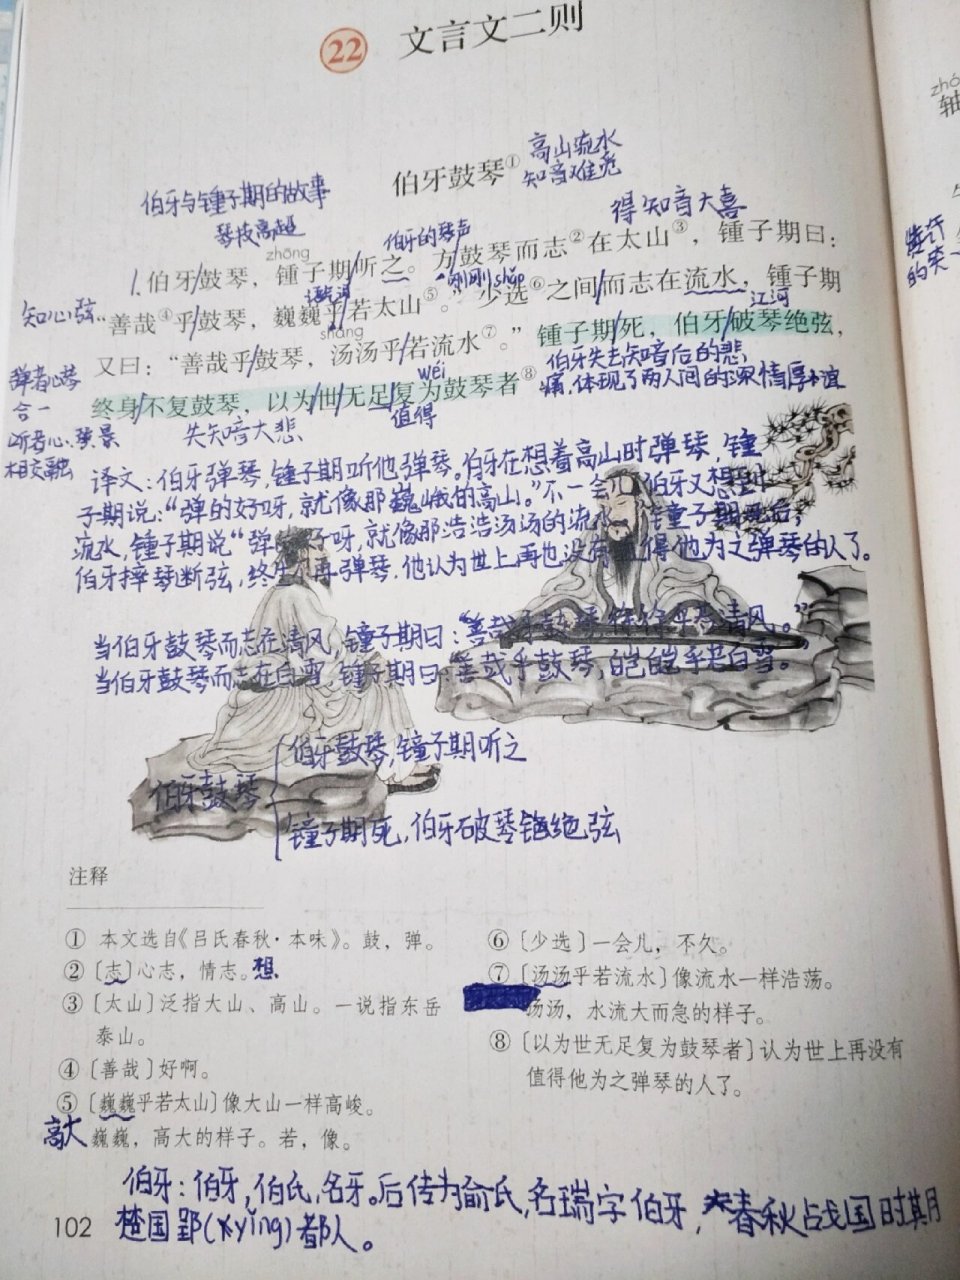 22 文言文二则
伯牙鼓琴①
高山流水
知音难觅
伯牙与锺子期的故事
琴技高超
伯牙的琴声
得知音大喜
zhōng
伯牙鼓琴，锺子期听之。方鼓琴而志②在太山③，锺子期曰：
刚刚 shǎo
语气词
江河
知心弦
“善哉④乎鼓琴，巍巍乎若太山⑤。”少选⑥之间而志在流水，锺子期
shāng
又曰：“善哉乎鼓琴，汤汤乎若流水⑦。”锺子期死，伯牙破琴绝弦，
wéi
伯牙失去知音后的悲
痛，体现了两人间的深情厚谊
终身不复鼓琴，以为世无足复为鼓琴者⑧。
值得
失知音大悲
弹者心琴
合一
听者心弦景
相交融
译文：伯牙弹琴，锺子期听他弹琴。伯牙在想着高山时弹琴，锺
子期说：“弹的好呀，就像那巍峨的高山。”不一会 伯牙又想到
流水，锺子期说“弹 好呀，就像那浩浩汤汤的流水 锺子期死后，
伯牙摔琴断弦，终生 再弹琴，他认为世上再也没有 得他为之弹琴的人了。
当伯牙鼓琴而志在清风，锺子期曰：“善哉乎鼓琴，徐徐乎若清风。”
当伯牙鼓琴而志在白雪 锺子期曰：善哉乎鼓琴，皑皑乎若白雪。”
伯牙鼓琴
伯牙鼓琴，锺子期听之
锺子期死，伯牙破琴绝弦
注释
① 本文选自《吕氏春秋·本味》。鼓，弹。
②〔志〕心志，情志。想.
③〔太山〕泛指大山、高山。一说指东岳
泰山。
④〔善哉〕好啊。
⑤〔巍巍乎若太山〕像大山一样高峻。
高大 巍巍，高大的样子。若，像。
⑥〔少选〕一会儿，不久。
⑦〔汤汤乎若流水〕像流水一样浩荡。
汤汤，水流大而急的样子。
⑧〔以为世无足复为鼓琴者〕认为世上再没有
值得他为之弹琴的人了。
伯牙：伯牙，伯氏，名牙。后传为俞氏，名瑞字伯牙，春秋战国时期
楚国郢(yǐng)都人。
102
zhó
轴